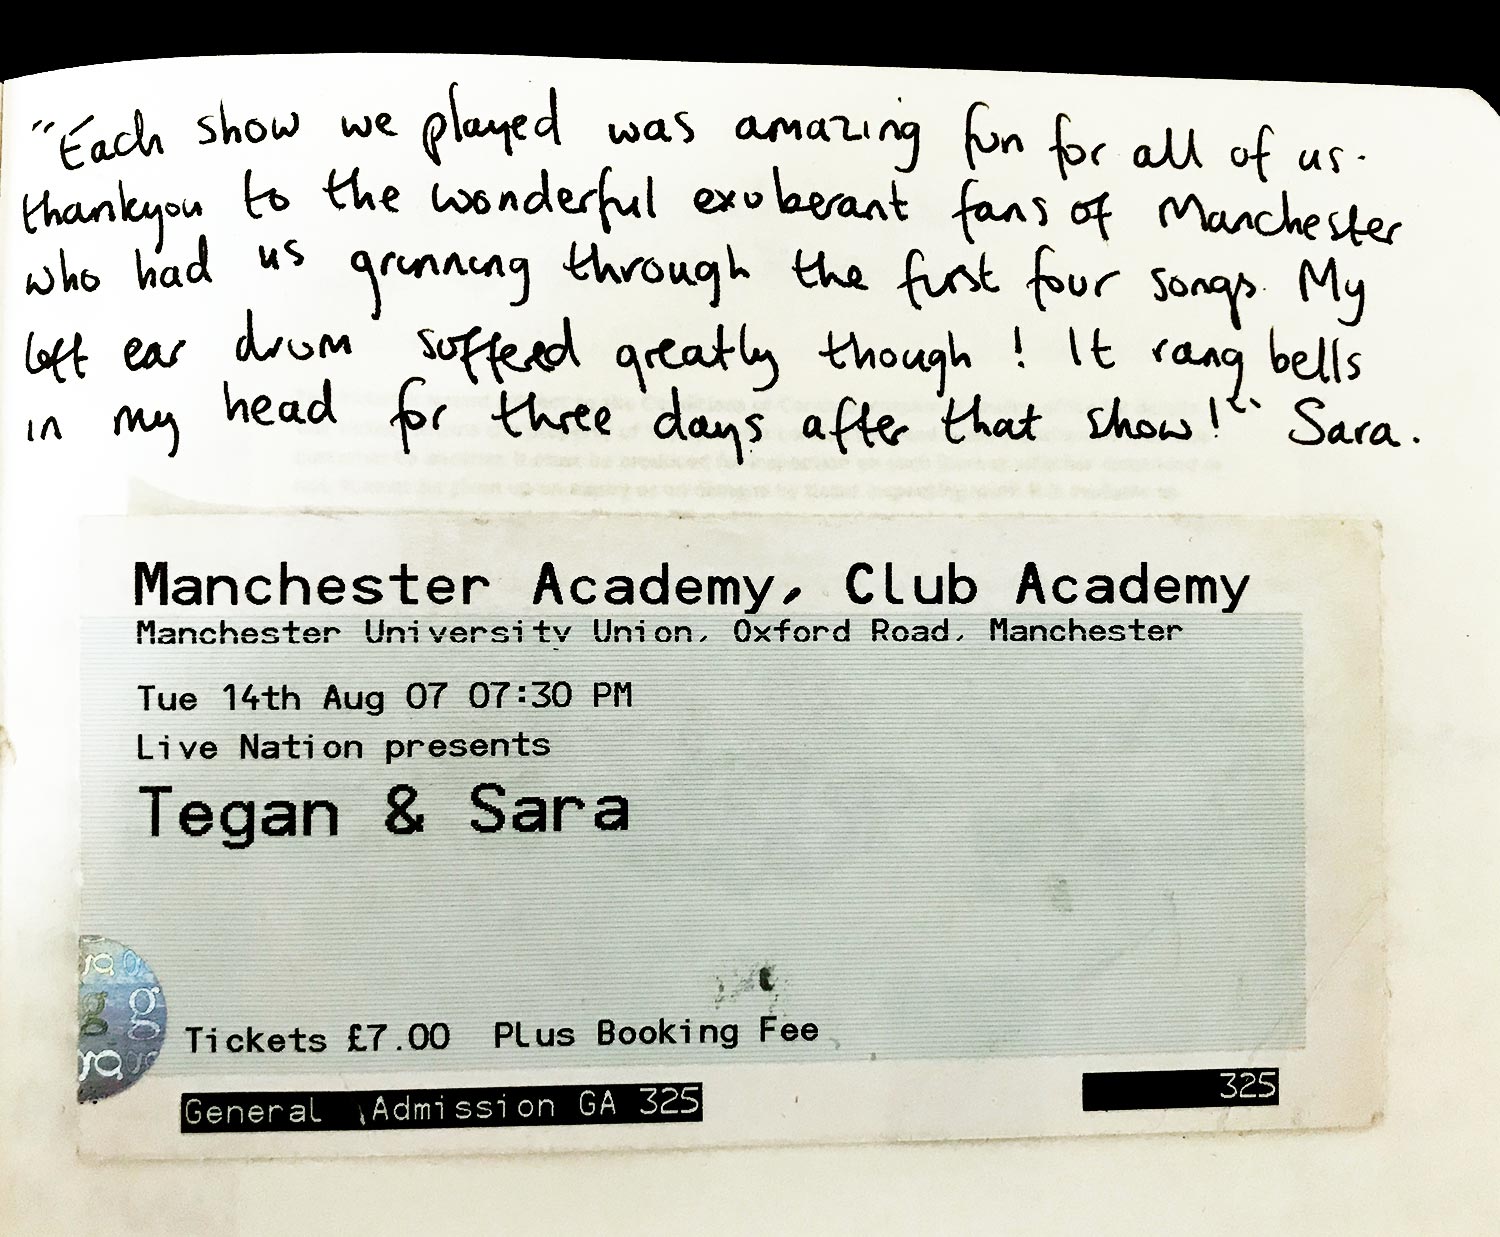 "Each show we played was amazing fun for all of us.
thankyou to the wonderful exuberant fans of Manchester
who had us grinning through the first four songs. My
left ear drum suffered greatly though! It rang bells
in my head for three days after that show!" Sara.
Manchester Academy, Club Academy
Manchester University Union, Oxford Road, Manchester
Tue 14th Aug 07 07:30 PM
Live Nation presents
Tegan & Sara
Tickets £7.00 Plus Booking Fee
General Admission GA 325
325